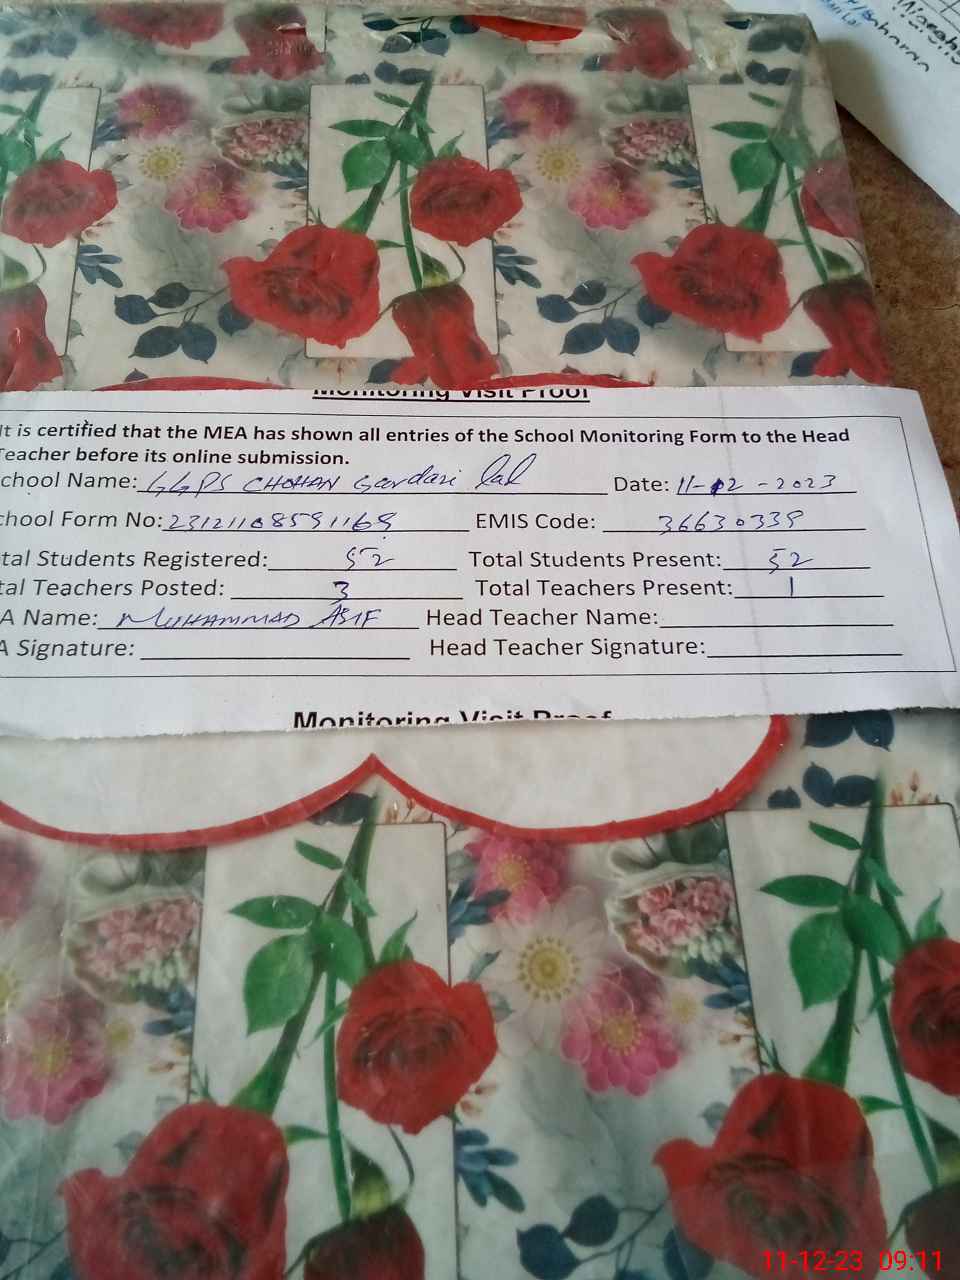 Monitoring Visit Proof
It is certified that the MEA has shown all entries of the School Monitoring Form to the Head
Teacher before its online submission.
chool Name: GGPS CHOHAN Sardari lal Date: 11-12-2023
chool Form No: 2312110859116 EMIS Code: 36630339
tal Students Registered: 52 Total Students Present: 52
tal Teachers Posted: 3 Total Teachers Present: 1
A Name: MUHAMMAD ASIF Head Teacher Name:
A Signature: Head Teacher Signature:
Monitoring Visit Proof
11-12-23 09:11